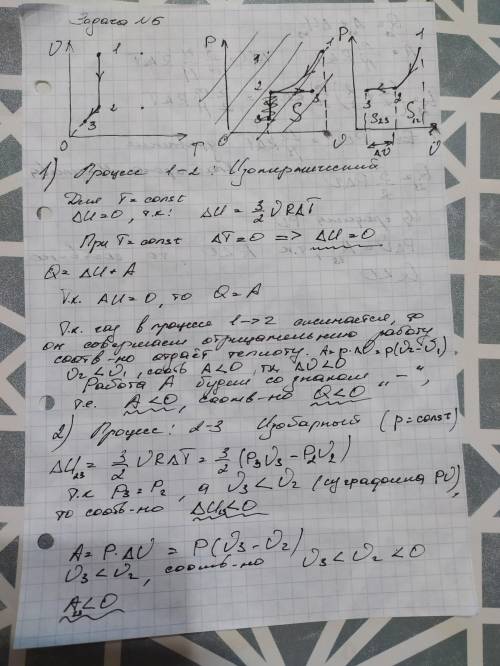 Задача №5
υ 1 2 3 0 T
P 1 2 3 S 0 υ
P 1 2 3 S₂₃ S₁₂ ΔU υ
1) Процесс 1-2 Изотермический
Для T = const
ΔU = 0, т.к: ΔU = 3/2 υRΔT
При T = const ΔT = 0 => ΔU = 0
Q = ΔU + A
т.к. ΔU = 0, то Q = A
т.к. газ в процессе 1→2 сжимается, то
он совершает отрицательную работу
соотв-но отдаёт теплоту. A = P·ΔU = P(υ₂-υ₁),
υ₂ < υ₁, соотв A<0, т.к. ΔU<0
Работа A будет со знаком „-“,
т.е. A<0, соотв-но Q<0
2) Процесс: 2-3 Изобарный (p = const)
ΔU₂₃ = 3/2 υRΔT = 3/2 (P₃υ₃ - P₂υ₂)
т.к P₃ = P₂, а υ₃ < υ₂ (из графика PU),
то соотв-но ΔU₂₃<0
A = P·ΔU = P(υ₃-υ₂)
υ₃ < υ₂, соотв-но υ₃ < υ₂ < 0
A₂₃<0